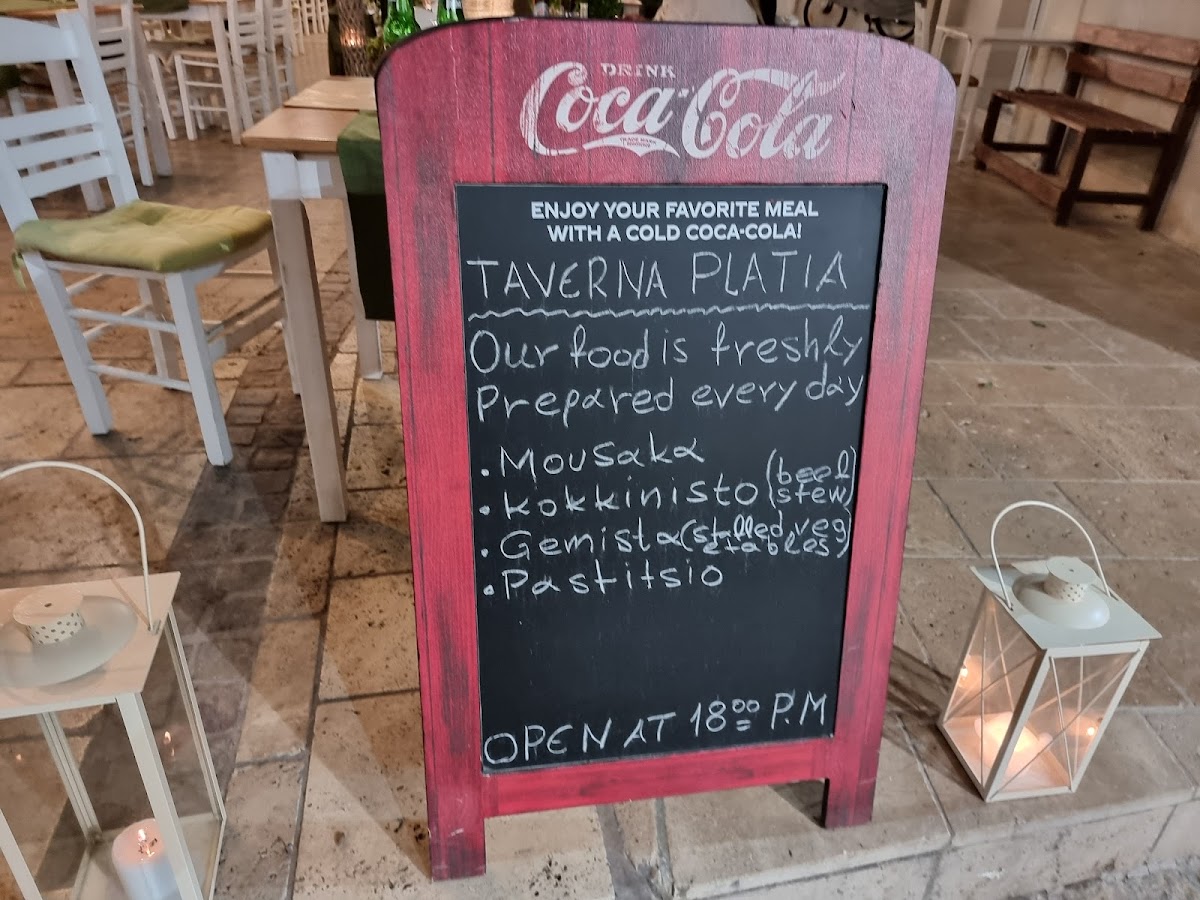 DRINK
Coca-Cola
ENJOY YOUR FAVORITE MEAL
WITH A COLD COCA-COLA!
TAVERNA PLATIA
Our food is freshly
Prepared every day
• Mousaka
• Kokkinisto (beef
stew)
• Gemista (stuffed veg
etables)
• Pastitsio
OPEN AT 18:00 P.M